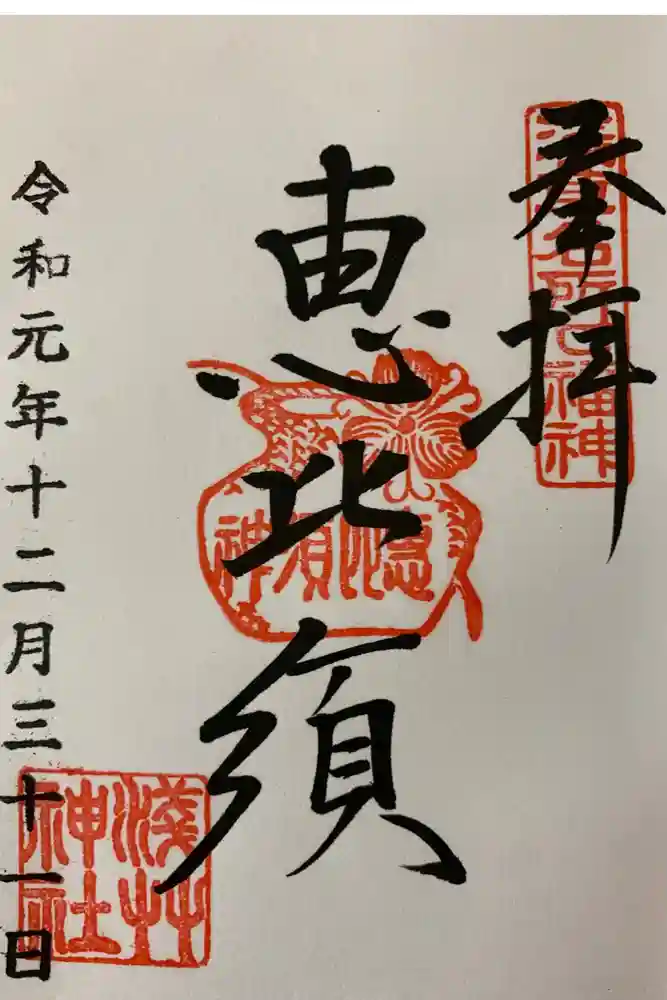 奉拝
浅草名所七福神
恵比須
恵比須神
令和元年十二月三十一日
淺草神社